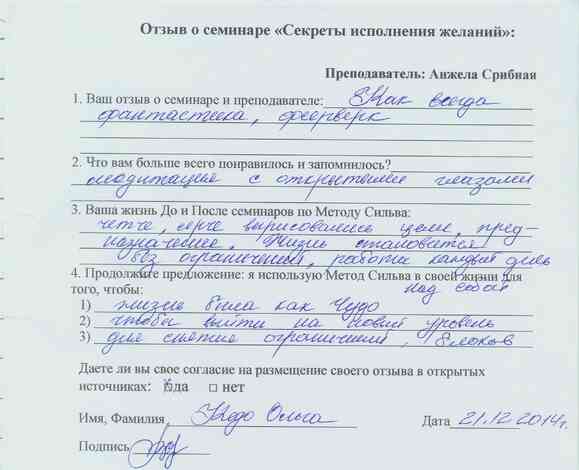 Отзыв о семинаре «Секреты исполнения желаний»:
Преподаватель: Анжела Срибная
1. Ваш отзыв о семинаре и преподавателе: Как всегда
фантастика, фейерверк
2. Что вам больше всего понравилось и запомнилось?
медитация с открытыми глазами
3. Ваша жизнь До и После семинаров по Методу Сильва:
четче, вырисовались цели, пред-
назначение, Жизнь становится
без ограничений, работа каждый день
4. Продолжите предложение: я использую Метод Сильва в своей жизни для
над собой
того, чтобы:
1) жизнь была как Чудо
2) чтобы выйти на новый уровень
3) для снятие ограничений, блоков
Даете ли вы свое согласие на размещение своего отзыва в открытых
источниках: да нет
Имя, Фамилия Кедо Ольга Дата 21.12.2014г.
Подпись